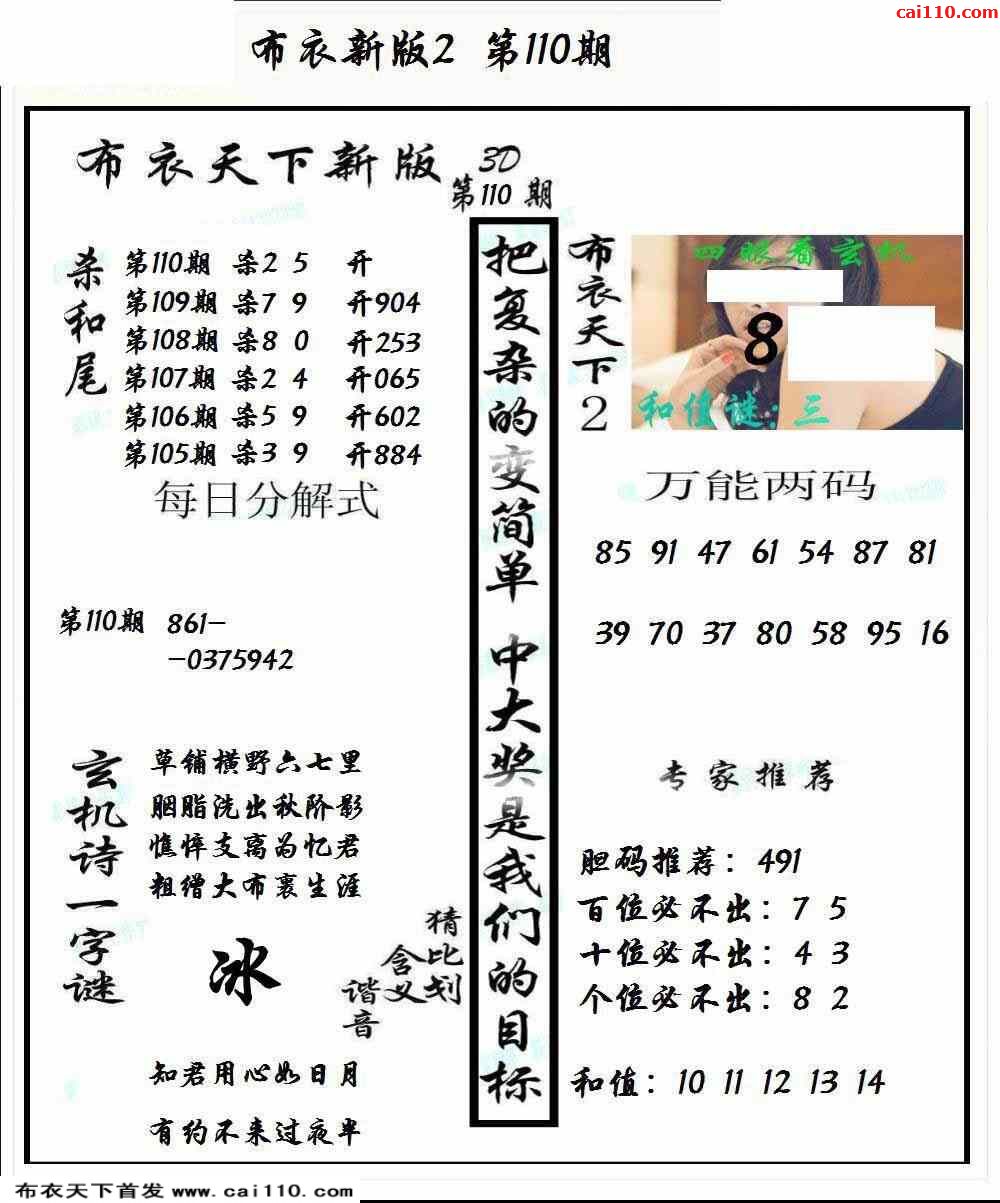 cai110.com
布衣新版2 第110期
布衣天下新版
3D
第110期
杀和尾
第110期 杀2 5 开
第109期 杀7 9 开904
第108期 杀8 0 开253
第107期 杀2 4 开065
第106期 杀5 9 开602
第105期 杀3 9 开884
每日分解式
第110期 861-
-0375942
玄机诗一字谜
草铺横野六七里
胭脂洗出秋阶影
憔悴支离为忆君
粗缯大布裹生涯
冰
猜比划
含义
谐音
知君用心如日月
有约不来过夜半
把复杂的变简单 中大奖是我们的目标
布衣天下2
四眼看玄机
8
和值谜:三
万能两码
85 91 47 61 54 87 81
39 70 37 80 58 95 16
专家推荐
胆码推荐：491
百位必不出：7 5
十位必不出：4 3
个位必不出：8 2
和值：10 11 12 13 14
布衣天下首发 www.cai110.com